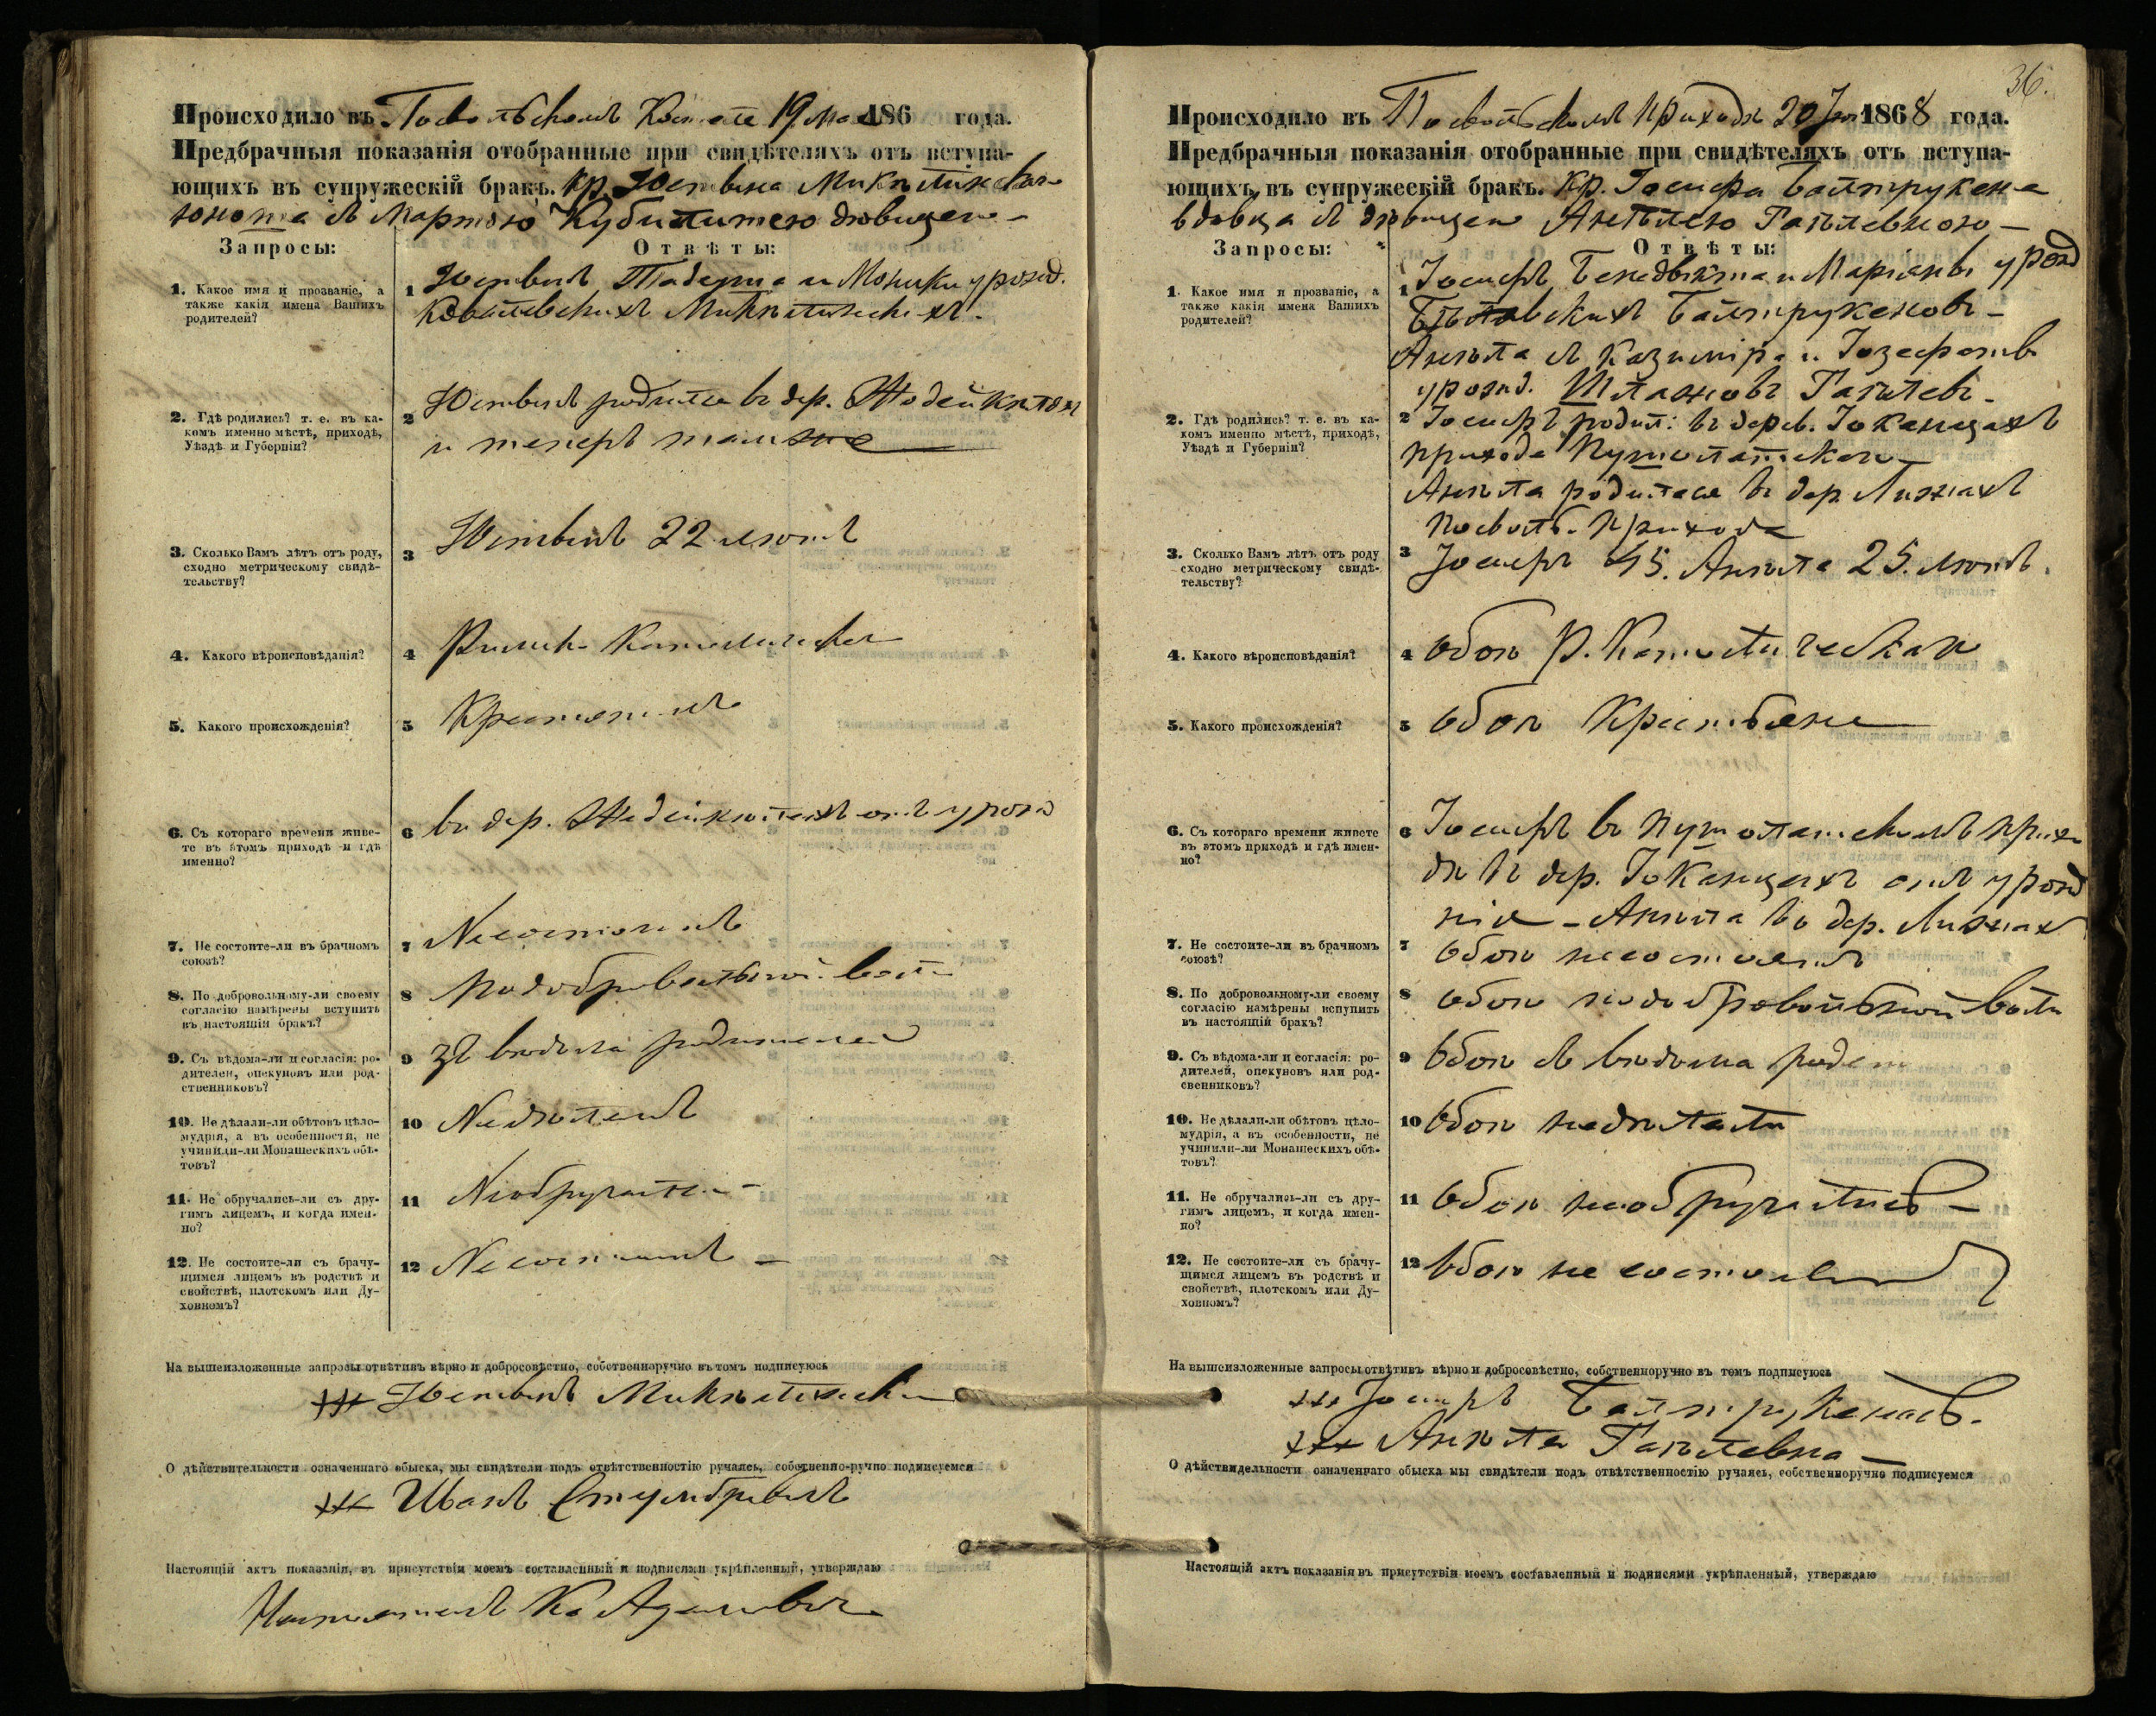 Происходило въ Посвольскомъ Костелѣ 19 мая 186 года.
Предбрачныя показанія отобранные при свидѣтеляхъ отъ вступа-
ющихъ въ супружескій бракъ. кр. Юстина
юноша съ Мартою девицею
Запросы: Отвѣты:
1. Какое имя и прозваніе, а
также какія имена Вашихъ
родителей?
1 Юстинъ и Моники урожд.
2. Гдѣ родились? т. е. въ ка-
комъ именно мѣстѣ, приходѣ,
Уѣздѣ и Губерніи?
2 Юстинъ родился въ дер.
и теперъ тамже
3. Сколько Вамъ лѣтъ отъ роду,
сходно метрическому свидѣ-
тельству?
3 Юстинъ 22 летъ
4. Какого вѣроисповѣданія?
4 Римско Католическаго
5. Какого происхожденія?
5 Крестянинъ
6. Съ котораго времени живе-
те въ этомъ приходѣ и гдѣ
именно?
6 въ дер. отъ урожд
7. Не состоите-ли въ брачномъ
союзѣ?
7 Несостоитъ
8. По добровольному-ли своему
согласію намѣрены вступить
въ настоящій бракъ?
8 Подобровольной воли
9. Съ вѣдома-ли и согласія: ро-
дителей, опекуновъ или род-
ственниковъ?
9 Зъ ведома родителей
10. Не дѣлали-ли обѣтовъ цѣло-
мудрія, а въ особенности, не
учинили-ли Монашескихъ обѣ-
товъ?
10 Недѣлалъ
11. Не обручались-ли съ дру-
гимъ лицемъ, и когда имен-
но?
11 Необручался
12. Не состоите-ли съ брачу-
щимся лицемъ въ родствѣ и
свойствѣ, плотскомъ или Ду-
ховномъ?
12 Несостоитъ
На вышеизложенные запросы отвѣтивъ вѣрно и добросовѣстно, собственноручно въ томъ подписуюсь
ххх Юстинъ
О дѣйствительности означеннаго обыска, мы свидѣтели подъ отвѣтственностію ручаясь, собственно-ручно подписуемся
ххх Иванъ
Настоящій актъ показанія, въ присутствіи моемъ составленный и подписями укрѣпленный, утверждаю
36.
Происходило въ Посвольскомъ приходѣ 20 1868 года.
Предбрачныя показанія отобранные при свидѣтеляхъ отъ вступа-
ющихъ въ супружескій бракъ. Кр. Іосифа Балтрукена
вдовца съ девицею Анѣлею
Запросы: Отвѣты:
1. Какое имя и прозваніе, а
также какія имена Вашихъ
родителей?
1 Іосифъ Бенедыкта и Маріяны урожд
Балтрукеновъ
Анѣла съ Казиміра и Іозефаты
урожд.
2. Гдѣ родились? т. е. въ ка-
комъ именно мѣстѣ, приходѣ,
Уѣздѣ и Губерніи?
2 Іосифъ родил: въ дерев. Іоканцахъ
прихода
Анѣла родилася въ дер.
Посволь. прихода
3. Сколько Вамъ лѣтъ отъ роду
сходно метрическому свидѣ-
тельству?
3 Іосифъ 45. Анѣла 25. летъ.
4. Какого вѣроисповѣданія?
4 Обои Р. Католическаго
5. Какого происхожденія?
5 Обои Крестьяне
6. Съ котораго времени живете
въ этомъ приходѣ и гдѣ имен-
но?
6 Іосифъ въ прихо
дѣ въ дер. Іоканцахъ отъ урожд
нія - Анѣла въ дер.
7. Не состоите-ли въ брачномъ
союзѣ?
7 Обои несостоятъ
8. По добровольному-ли своему
согласію намѣрены вспупить
въ настоящій бракъ?
8 Обои подобровольной воли
9. Съ вѣдома-ли и согласія: ро-
дителей, опекуновъ или род-
свенниковъ?
9 Обои съ ведома
10. Не дѣлали-ли обѣтовъ цѣло-
мудрія, а въ особенности, не
учинили-ли Монашескихъ обѣ-
товъ?
10 Обои недѣлали
11. Не обручались-ли съ дру-
гимъ лицемъ, и когда имен-
но?
11 Обои необручались
12. Не состоите-ли съ брачу-
щимся лицемъ въ родствѣ и
свойствѣ, плотскомъ или Ду-
ховномъ?
12 Обои не состоятъ
На вышеизложенные запросы отвѣтивъ вѣрно и добросовѣстно, собственноручно въ томъ подписуюсь
ххх Іосифъ Балтрукенасъ
ххх Анѣла
О дѣйствидельности означеннаго обыска мы свидѣтели подъ отвѣтственностію ручаясь, собственноручно подписуемся
Настоящій актъ показанія въ присутствіи моемъ составленный и подписями укрѣпленный, утверждаю